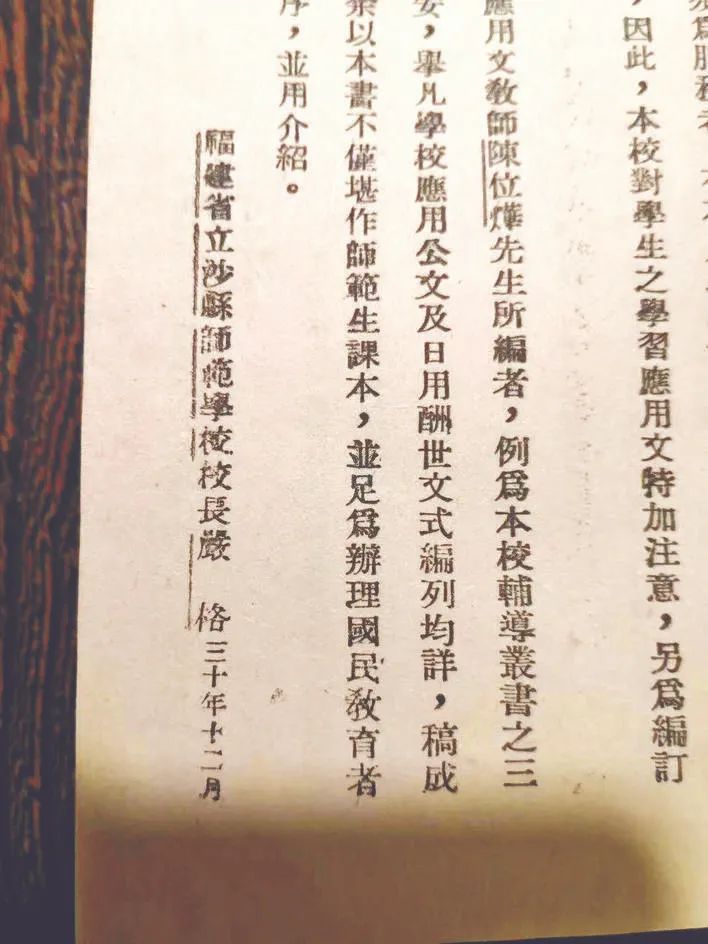 ，因此，本校對學生之學習應用文特加注意，另爲編訂
應用文敎師陳位燁先生所編者，例爲本校輔導叢書之三
，舉凡學校應用公文及日用酬世文式編列均詳，稿成
以本書不僅堪作師範生課本，並足爲辦理國民敎育者
序，並用介紹。
福建省立沙縣師範學校校長嚴　格三十年十二月